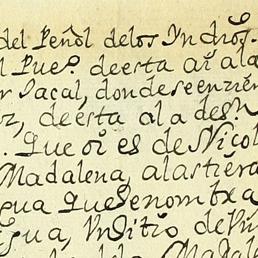 del Peñol delos Yndios.
l Pueo. de esta aì ala
r Jacal, donde se enzien
oz, de esta al a de sn
. Que oi es de Nicol
Madalena, alas tiera
gua que se nombra
igua, Un Sitio de Un